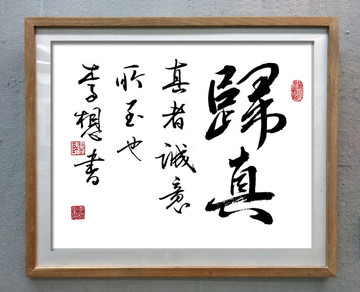 歸真
真者誠意
所至也
李想書